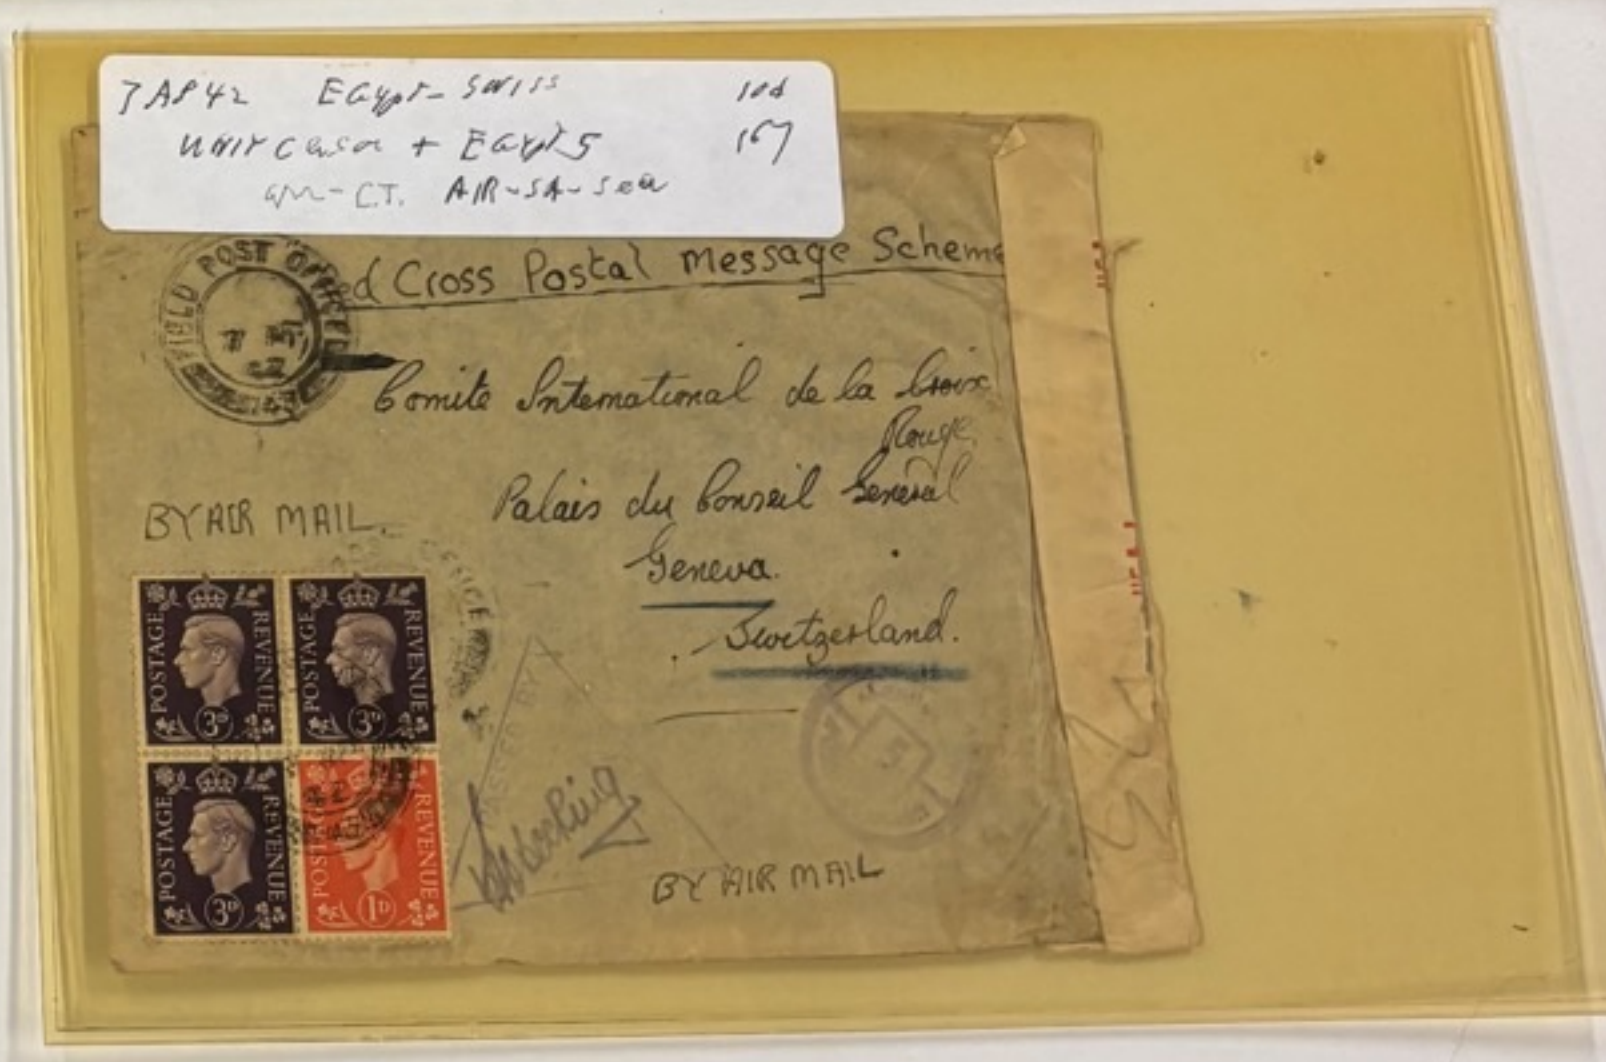 7 AP 42 Egypt - Swiss 10d
Unit Censor + Egypt 5 167
AIR - SA - Sea
FIELD POST OFFICE
d Cross Postal Message Scheme
Comite International de la Croix
Rouge,
Palais du Conseil General
Geneva.
Switzerland.
BY AIR MAIL.
POSTAGE REVENUE 3D
POSTAGE REVENUE 3D
POSTAGE REVENUE 3D
POSTAGE REVENUE 1D
PASSED BY
BY AIR MAIL